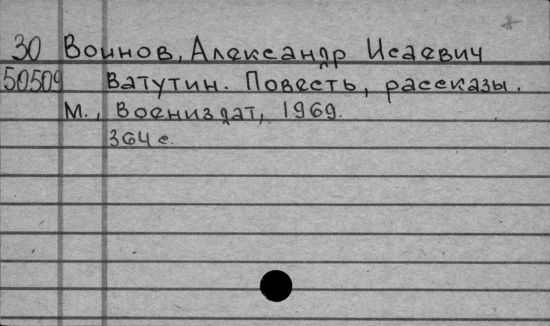 30 Воинов, Александр Исаевич
50509 Ватутин. Повесть, рассказы.
М., Воениздат, 1969.
364 с.